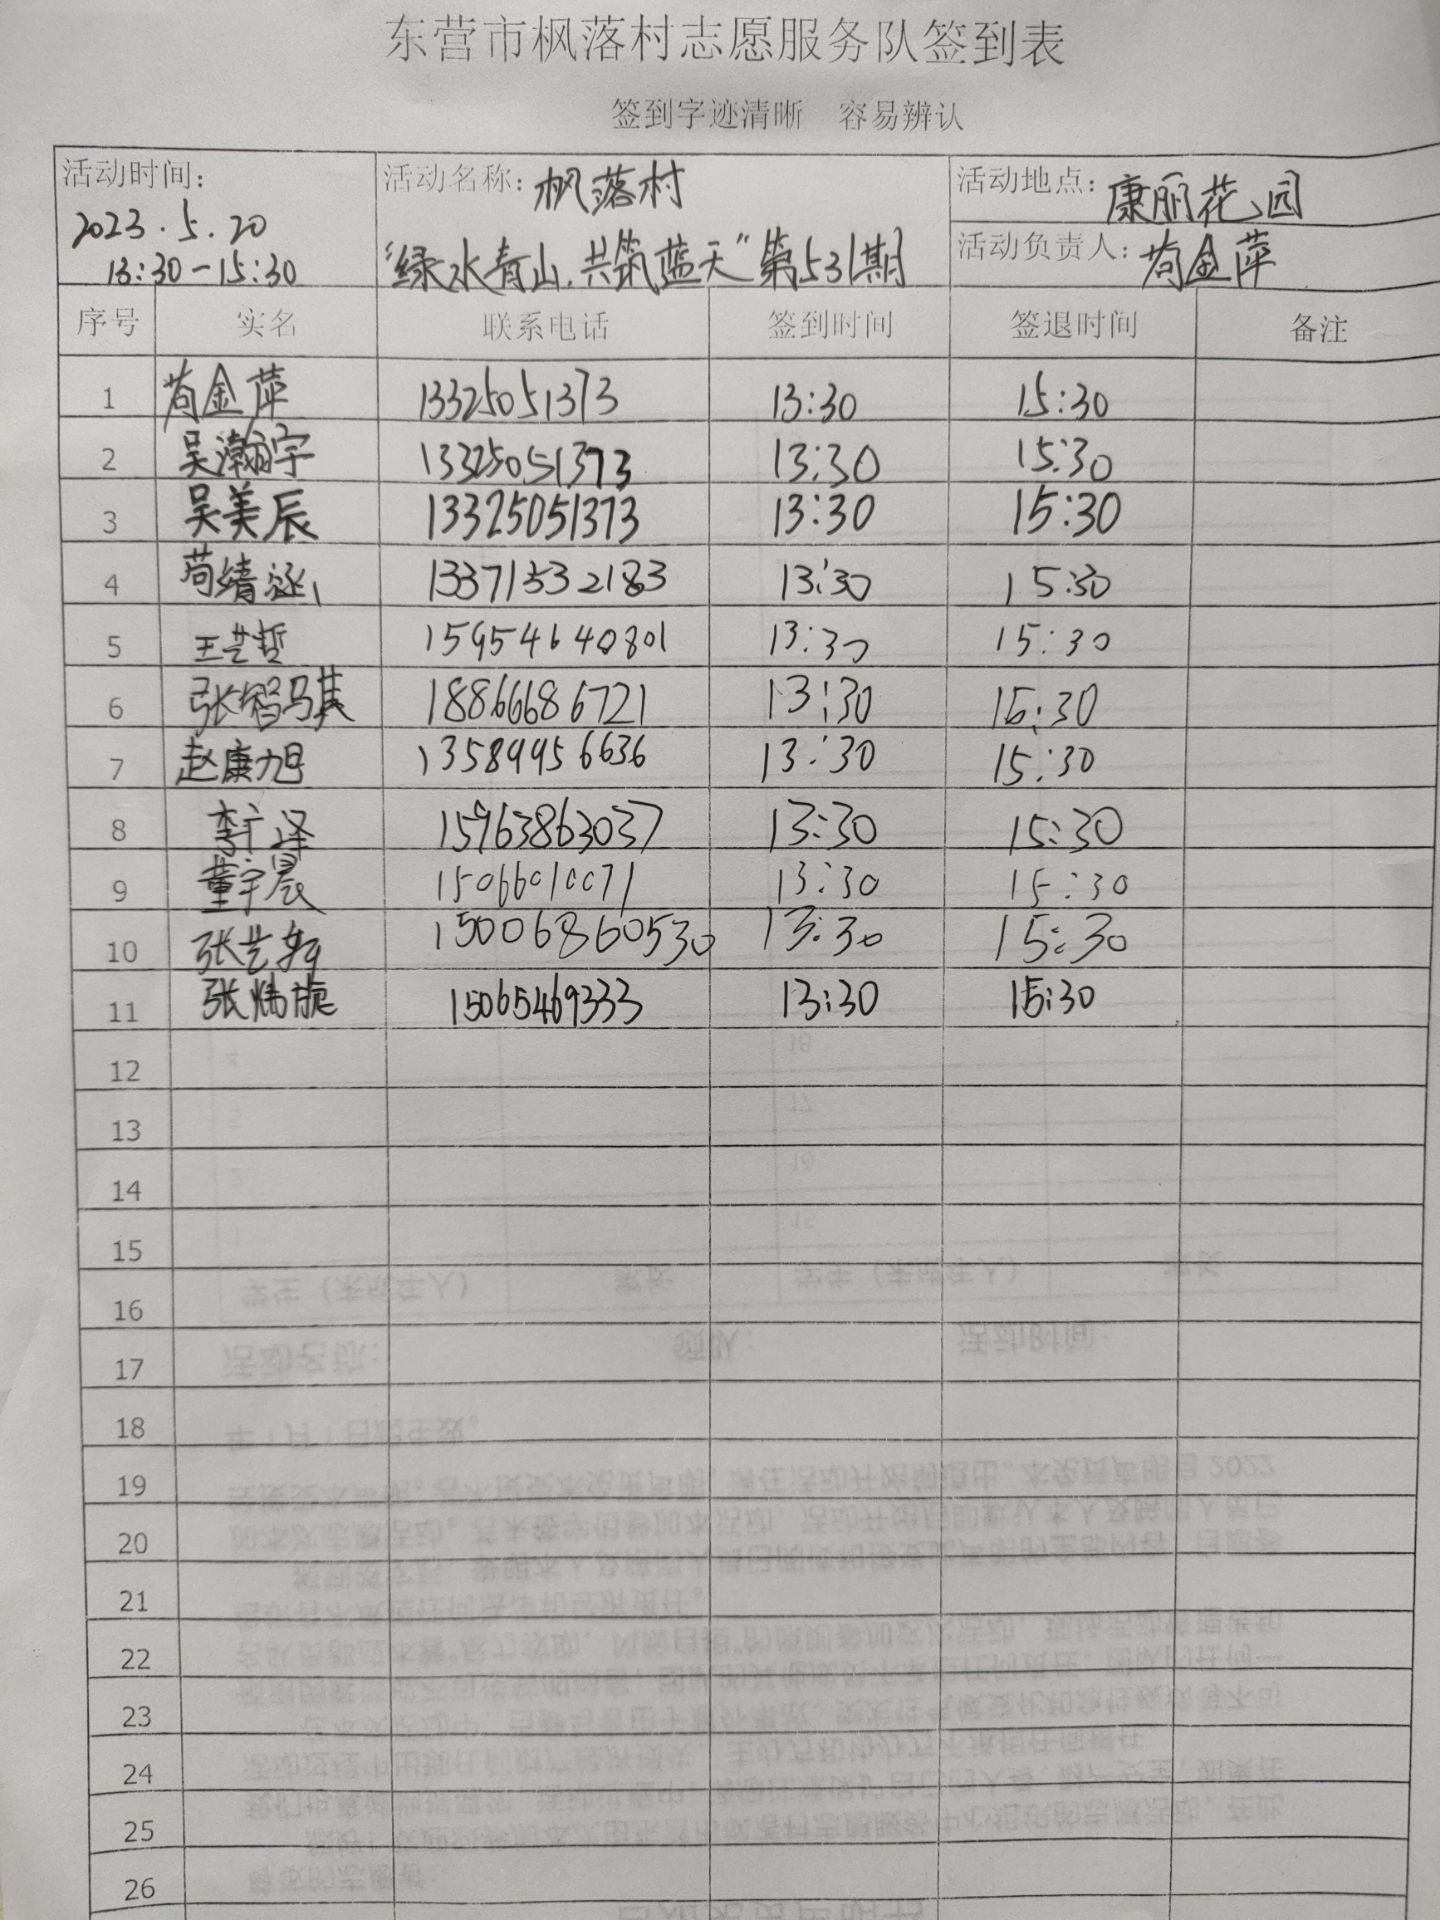 东营市枫落村志愿服务队签到表
签到字迹清晰 容易辨认
活动时间: 2023.5.20 13:30-15:30
活动名称: 枫落村
"绿水青山.共筑蓝天"第531期
活动地点: 康丽花园
活动负责人: 苟金萍
序号 实名 联系电话 签到时间 签退时间 备注
1 苟金萍 13325051373 13:30 15:30
2 吴瀚宇 13325051373 13:30 15:30
3 吴美辰 13325051373 13:30 15:30
4 苟婧涵 13371532183 13:30 15:30
5 王艺哲 15954640801 13:30 15:30
6 张智骐 18866686721 13:30 15:30
7 赵康旭 13589956636 13:30 15:30
8 李广泽 15963863037 13:30 15:30
9 董宇晨 15066010071 13:30 15:30
10 张艺 150068860530 13:30 15:30
11 张炜旋 15065469333 13:30 15:30
12
13
14
15
16
17
18
19
20
21
22
23
24
25
26